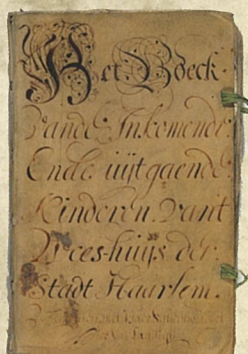 Het Boeck
vande Inkomende
Ende uijtgaende
Kinderen vant
Wees-huijs der
Stadt Haarlem.